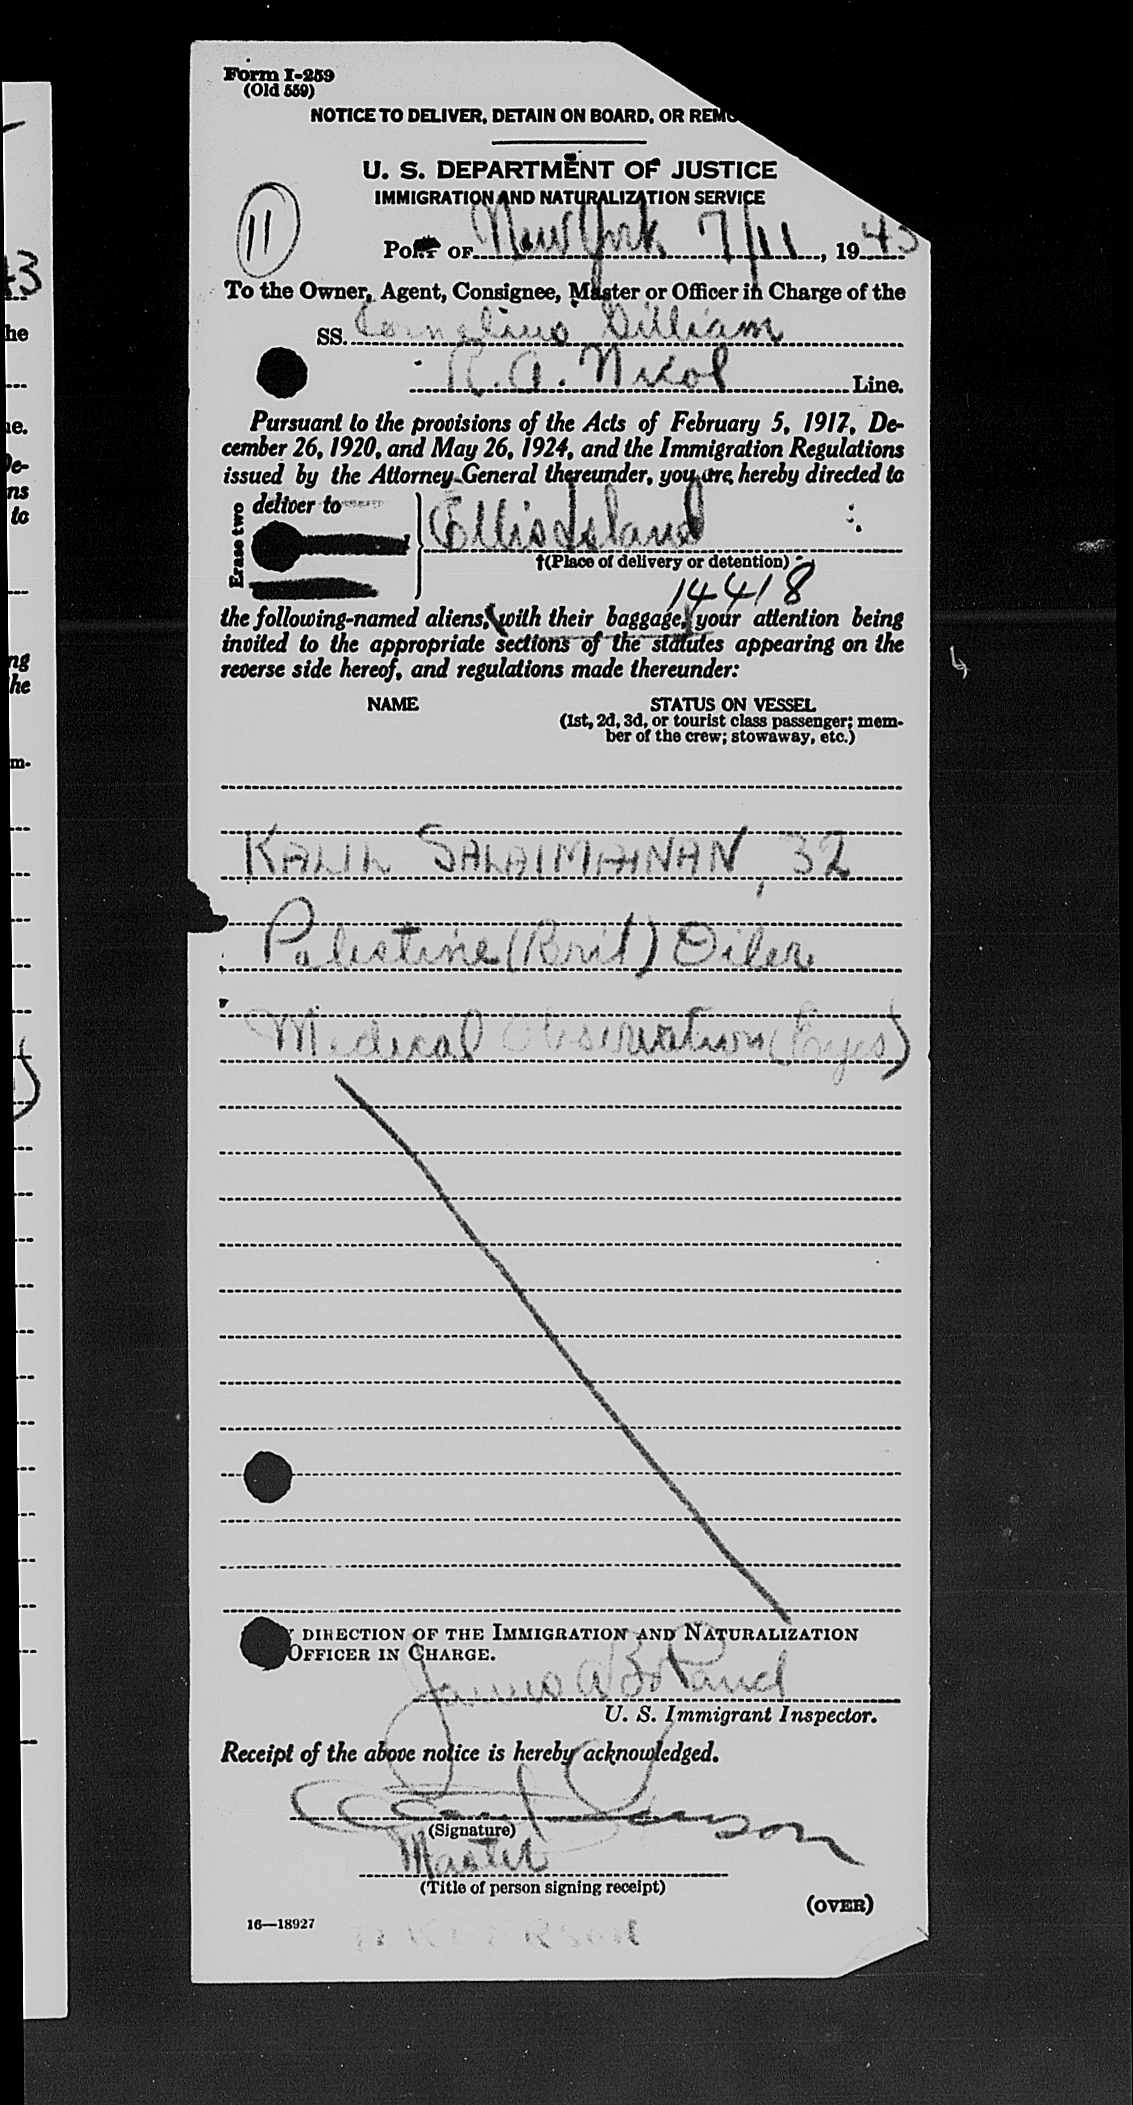 Form I-259
(Old 559)
NOTICE TO DELIVER, DETAIN ON BOARD, OR REMO
U. S. DEPARTMENT OF JUSTICE
IMMIGRATION AND NATURALIZATION SERVICE
11
PORT OF New York 7/11, 1943
To the Owner, Agent, Consignee, Master or Officer in Charge of the
SS. Cornelius Gilliam
R. A. Nicol Line.
Pursuant to the provisions of the Acts of February 5, 1917, De-
cember 26, 1920, and May 26, 1924, and the Immigration Regulations
issued by the Attorney General thereunder, you are hereby directed to
Erase two
deliver to
Ellis Island
†(Place of delivery or detention)
14418
the following-named aliens, with their baggage, your attention being
invited to the appropriate sections of the statutes appearing on the
reverse side hereof, and regulations made thereunder:
NAME STATUS ON VESSEL
(1st, 2d, 3d, or tourist class passenger; mem-
ber of the crew; stowaway, etc.)
KALIL SALAIMAINAN, 32
Palestine (Brit) Oiler
Medical Observation (Eyes)
DIRECTION OF THE IMMIGRATION AND NATURALIZATION
OFFICER IN CHARGE.
James A Boland
U. S. Immigrant Inspector.
Receipt of the above notice is hereby acknowledged.
(Signature)
Master
(Title of person signing receipt)
(OVER)
16—18927